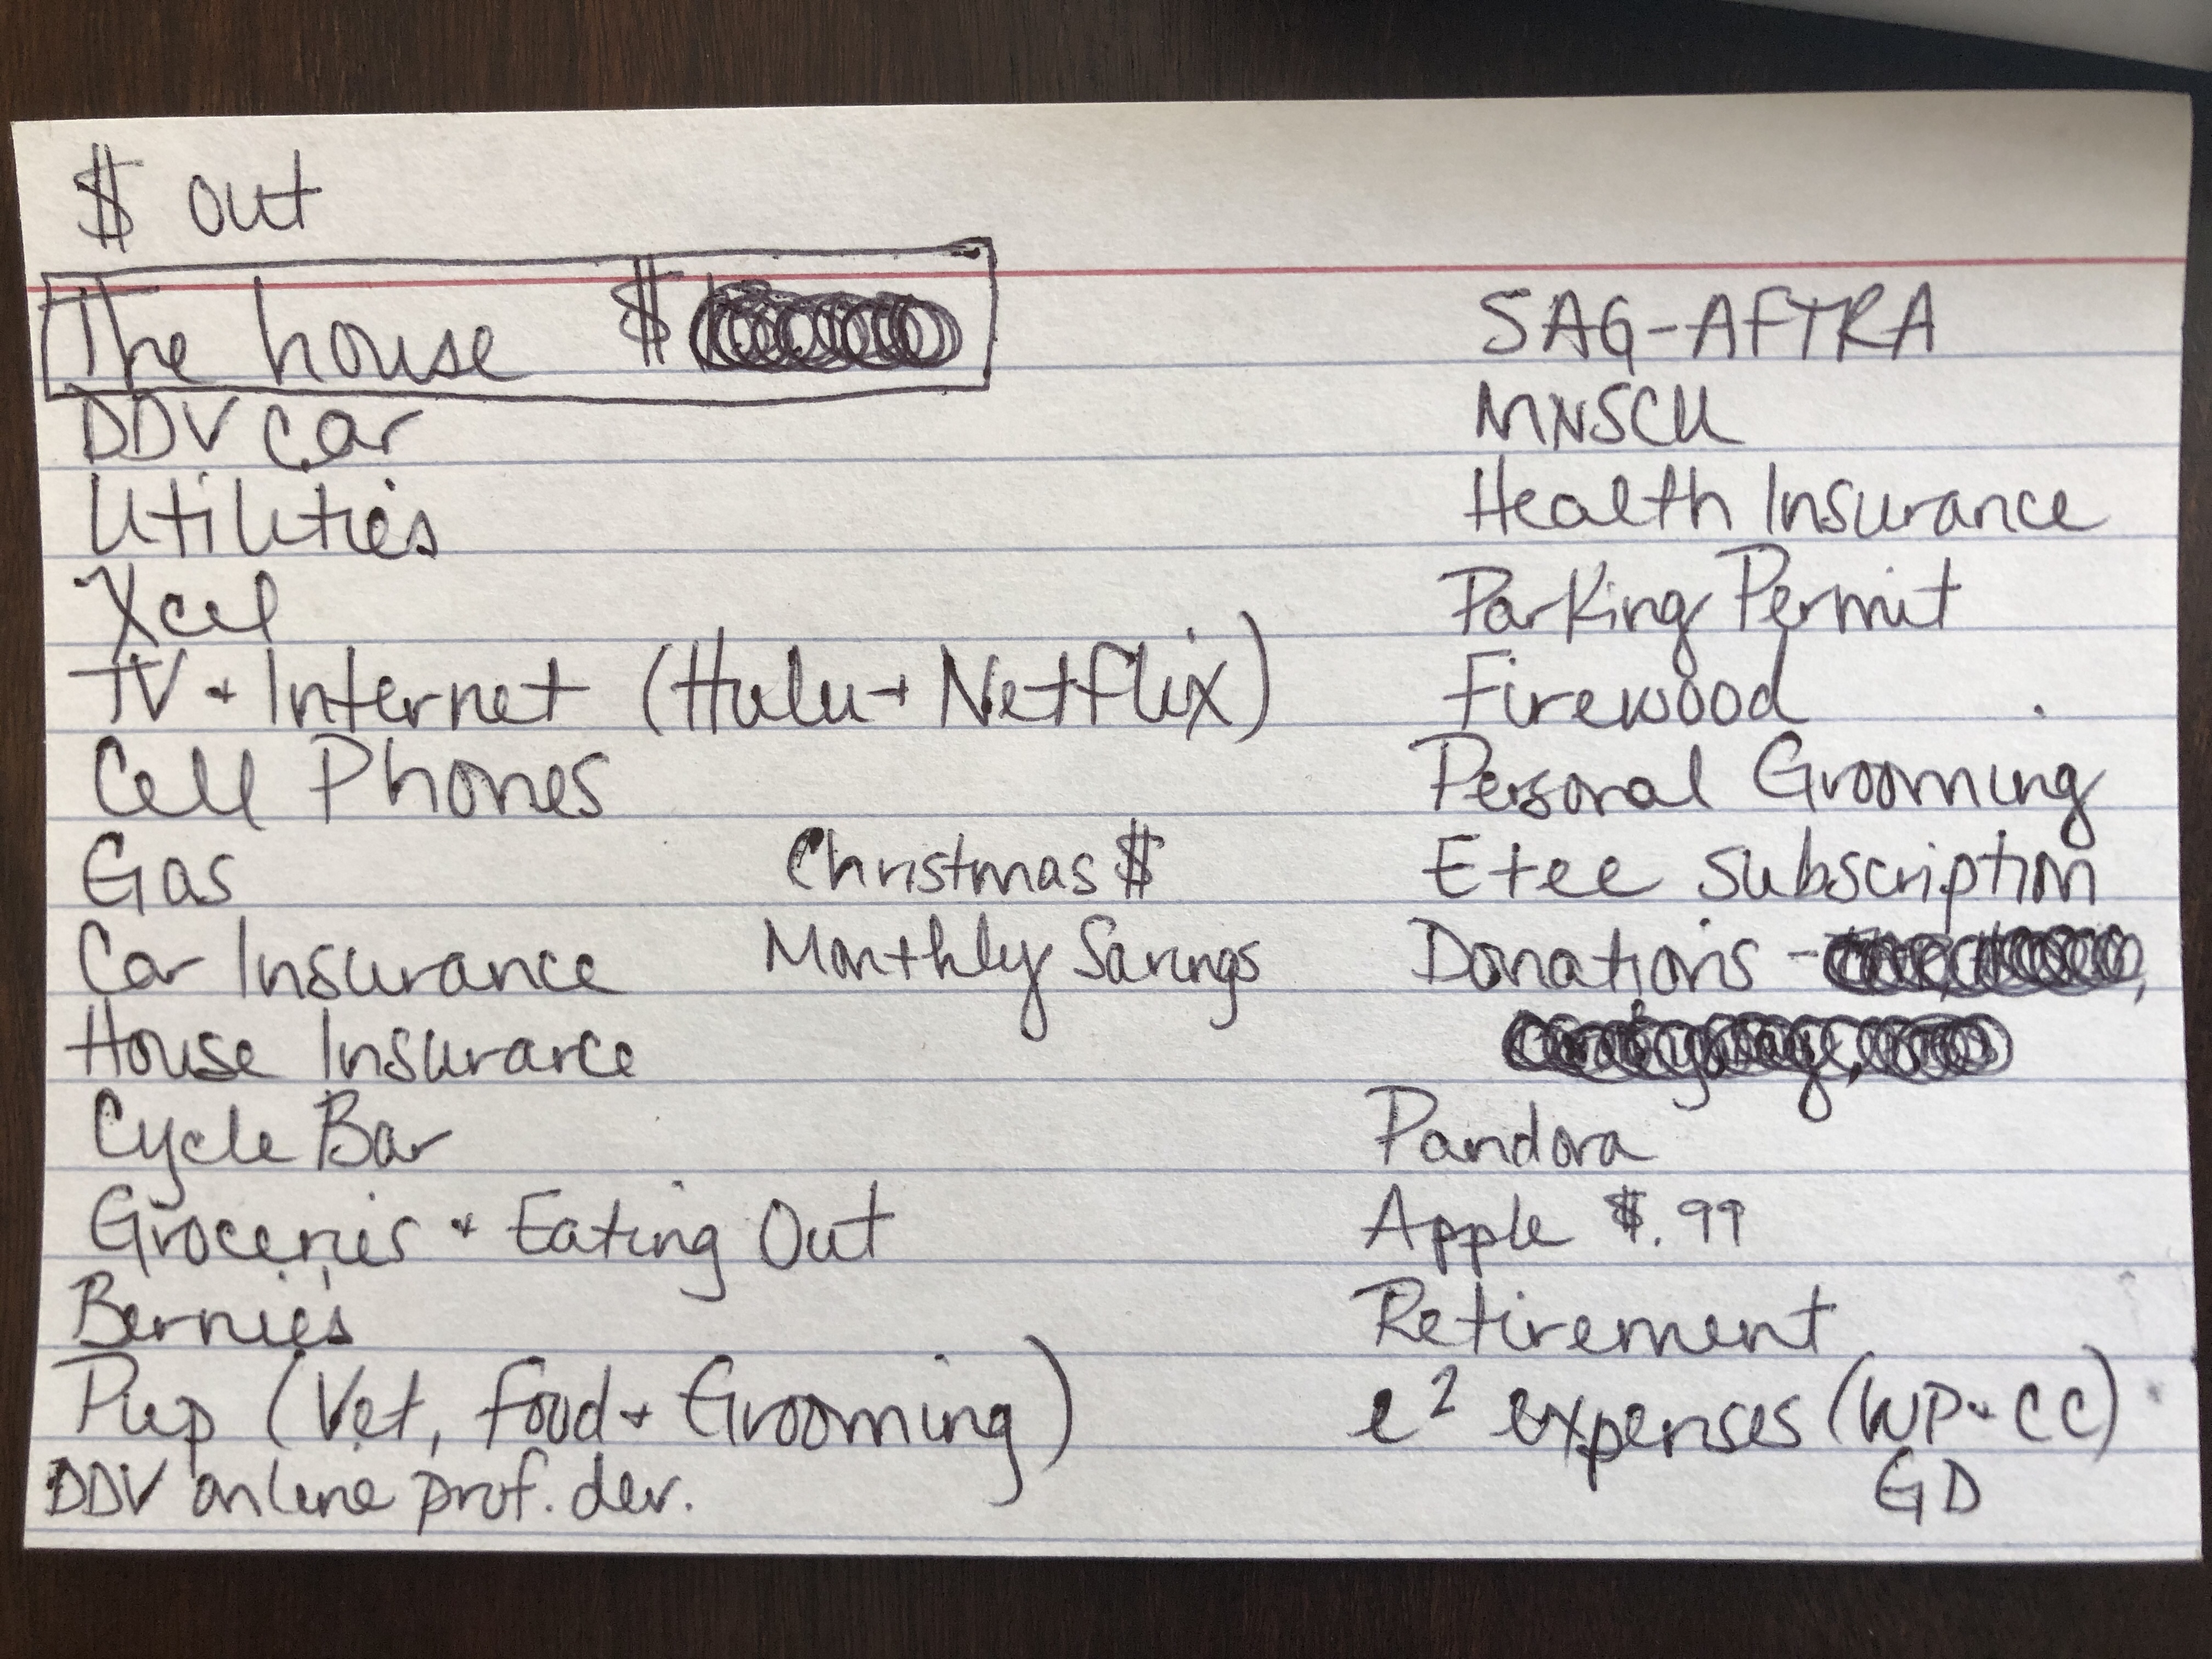 $ out
The house $
DDV car
Utilities
Xcel
TV + Internet (Hulu + Netflix)
Cell Phones
Gas
Car Insurance
House Insurance
Cycle Bar
Groceries + Eating Out
Bernie's
Pup (Vet, food + Grooming)
DDV online prof. dev.
Christmas $
Monthly Savings
SAG-AFTRA
MNSCU
Health Insurance
Parking Permit
Firewood
Personal Grooming
Etee subscription
Donations -
Pandora
Apple $.99
Retirement
e² expenses (WP + CC)
GD